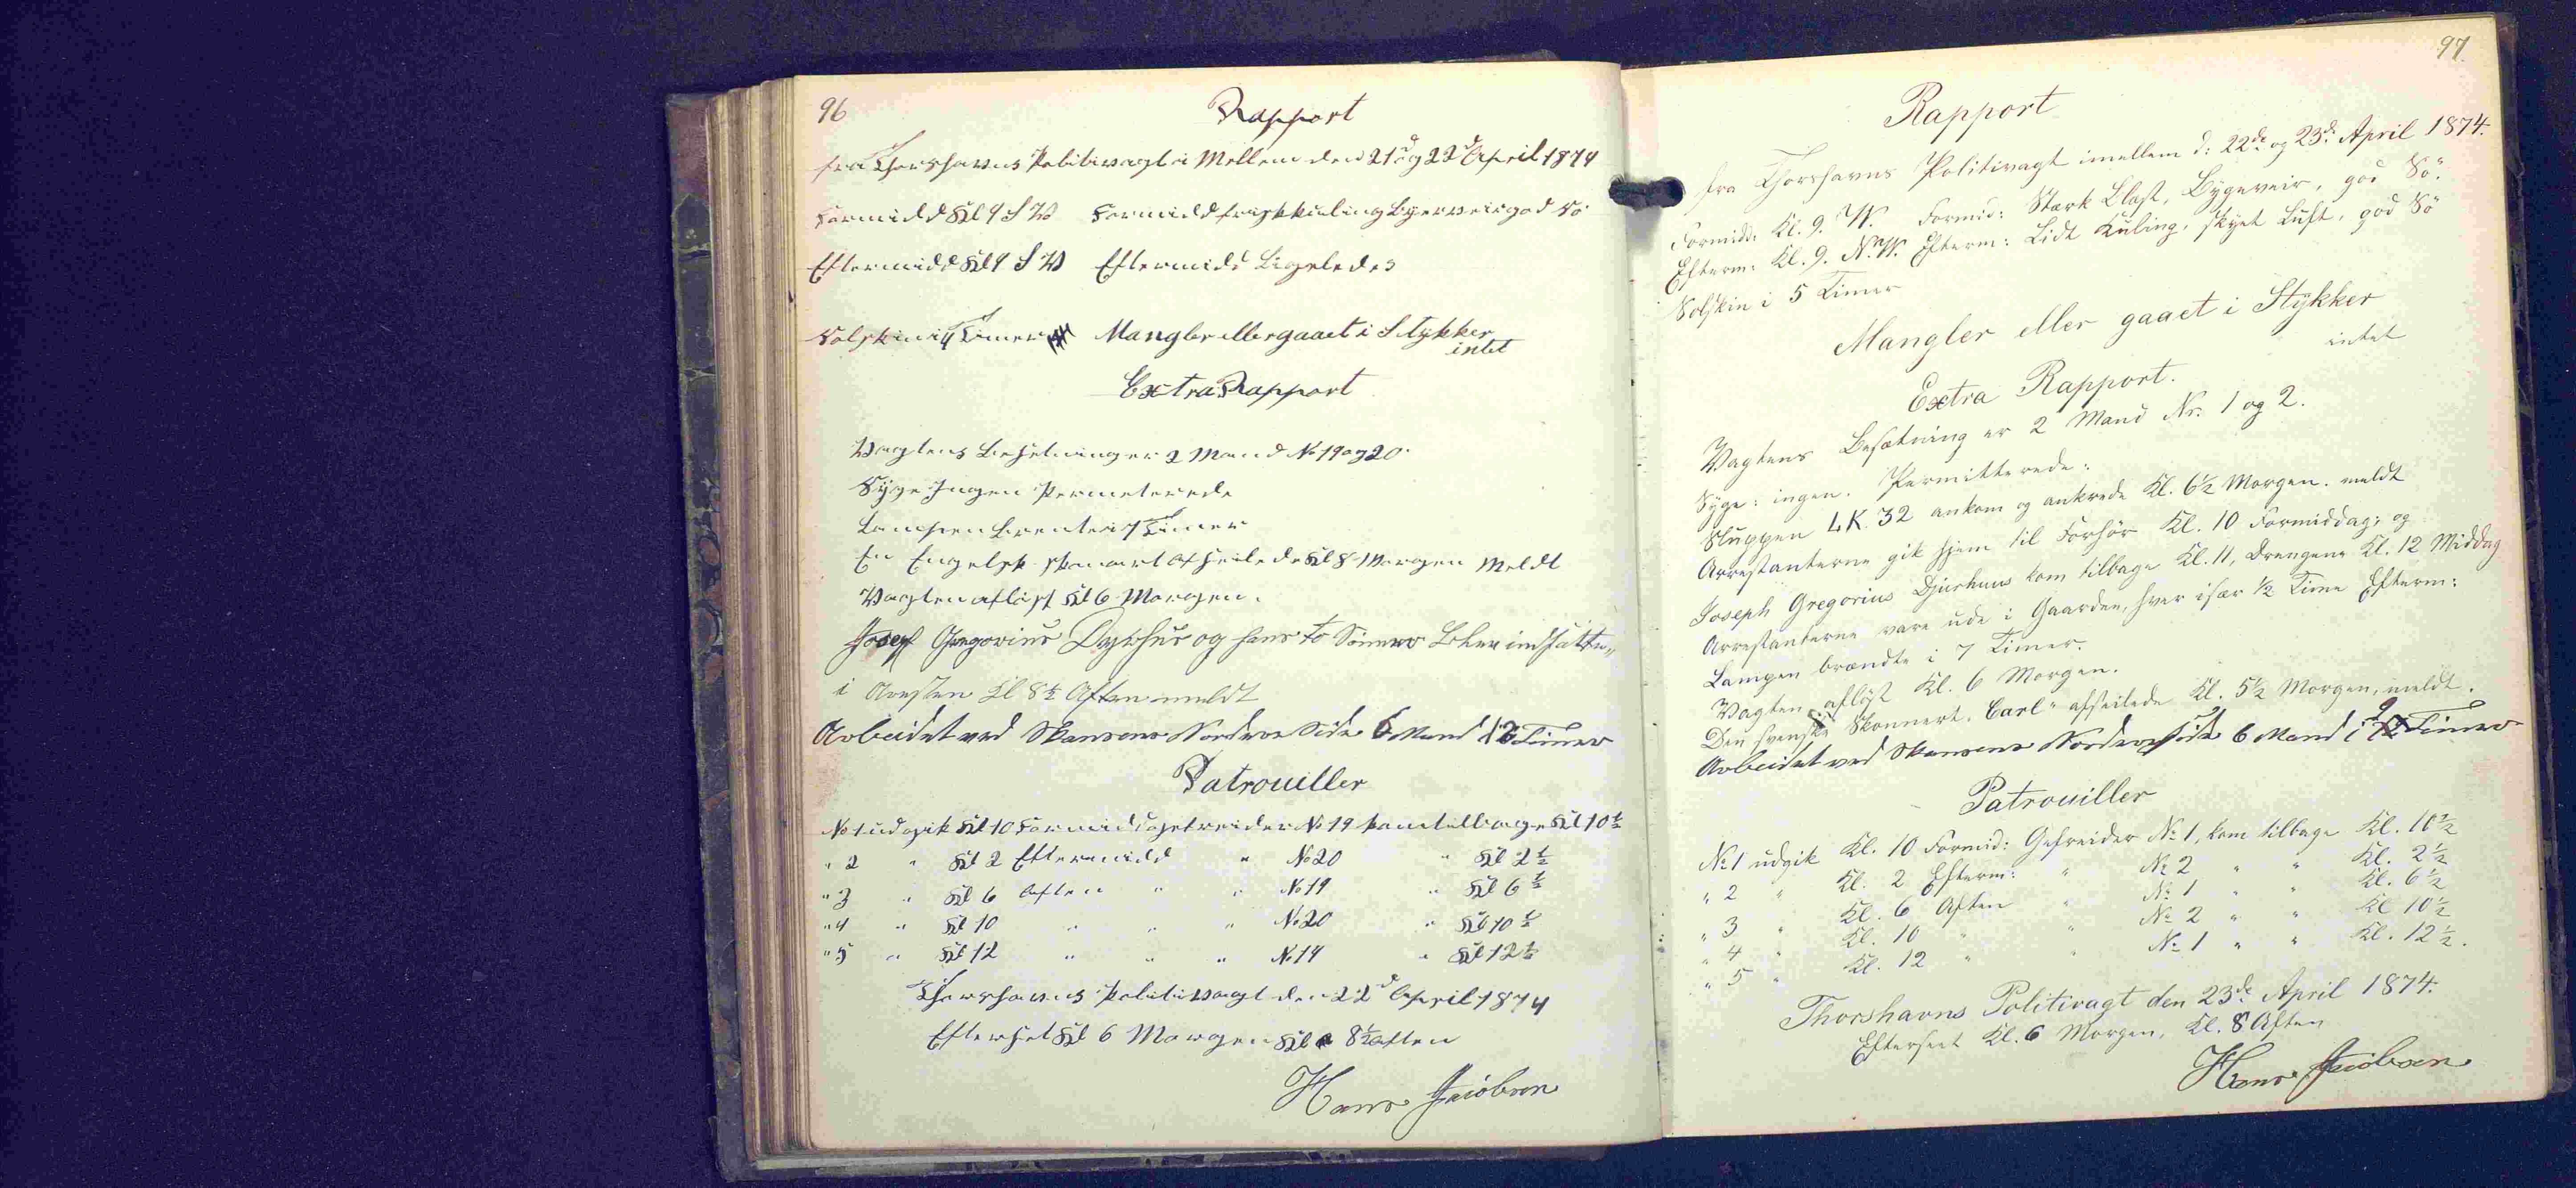 96
Rapport
fra Thorshavns Politivagt i Mellem den 21d og 22d April 1874
Formidd Kl 9 S W Formidd frisk kuling Byerveir god Sö
Eftermidd Kl 9 S W Eftermidd Ligeledes
Solskin i 4 Timer Mangler eller gaaet i Stykker
intet
Extra Rapport
Vagtens Besetning er 2 Mand No 19 og 20.
Syge Ingen Permeterede
Lampen Brente i 7 Timer
En Engelsk skonnert afseilede Kl 8 Morgen meldt
Vagten aflöst Kl 6 Morgen.
Josep Gregorius Dyrhus og hans to Sönner Blev indsatte
i Aresten Kl 8½ Aften meldt
Arbeidet ved Skansens Nordre Side 6 Mand i 12 Timer
Patrouiller
No 1 udgik Kl 10 Formidd gefreider No 19 kom tilbage Kl 10½
" 2 " Kl 2 Eftermidd " No 20 " Kl 2½
" 3 " Kl 6 Aften " " No 19 " Kl 6½
" 4 " Kl 10 " " " No 20 " Kl 10½
" 5 " Kl 12 " " " No 19 " Kl 12½
Thorshavns Politivagt den 22d April 1874
Efterset Kl 6 Morgen Kl 8½ Aften
Hans Jacobsen
97.
Rapport
fra Thorshavns Politivagt imellem d: 22de og 23d: April 1874.
Formidd: Kl. 9. W. Formid: Stærk Blast, Bygeveir, god Sö.
Efterm: Kl. 9. N.W. Efterm: Lidt Kuling, skyet Luft, god Sö
Solskin i 5 Timer
Mangler eller gaaet i Stykker
intet
Extra Rapport.
Vagtens Besætning er 2 Mand Nr. 1 og 2.
Syge: ingen. Permitterede:
Sluppen L.K. 32 ankom og ankrede Kl. 6½ Morgen. meldt
Arrestanterne gik hjem til Forhör Kl. 10 Formiddag; og
Joseph Gregorius Djurhuus kom tilbage Kl. 11, Drengene Kl. 12 Middag
Arrestanterne vare ude i Gaarden, hver især ½ Time Efterm:
Lampen brændte i 7 Timer.
Vagten aflöst Kl. 6 Morgen.
Den svenske Skonnert "Carl" afseilede Kl. 5½ Morgen, meldt.
Arbeidet ved Skansens Nordre side 6 Mand i 9 Timer
Patrouiller
No 1 udgik Kl. 10 Formid: Gefreider No 1, kom tilbage Kl. 10½
" 2 " Kl. 2 Efterm: " No 2 " " Kl. 2½
" 3 " Kl. 6 Aften " No 1 " " Kl. 6½
" 4 " Kl. 10 " " No 2 " " Kl 10½
" 5 " Kl. 12 " " No 1 " " Kl. 12½.
Thorshavns Politivagt den 23de April 1874.
Efterseet Kl. 6 Morgen, Kl. 8 Aften
Hans Jacobsen